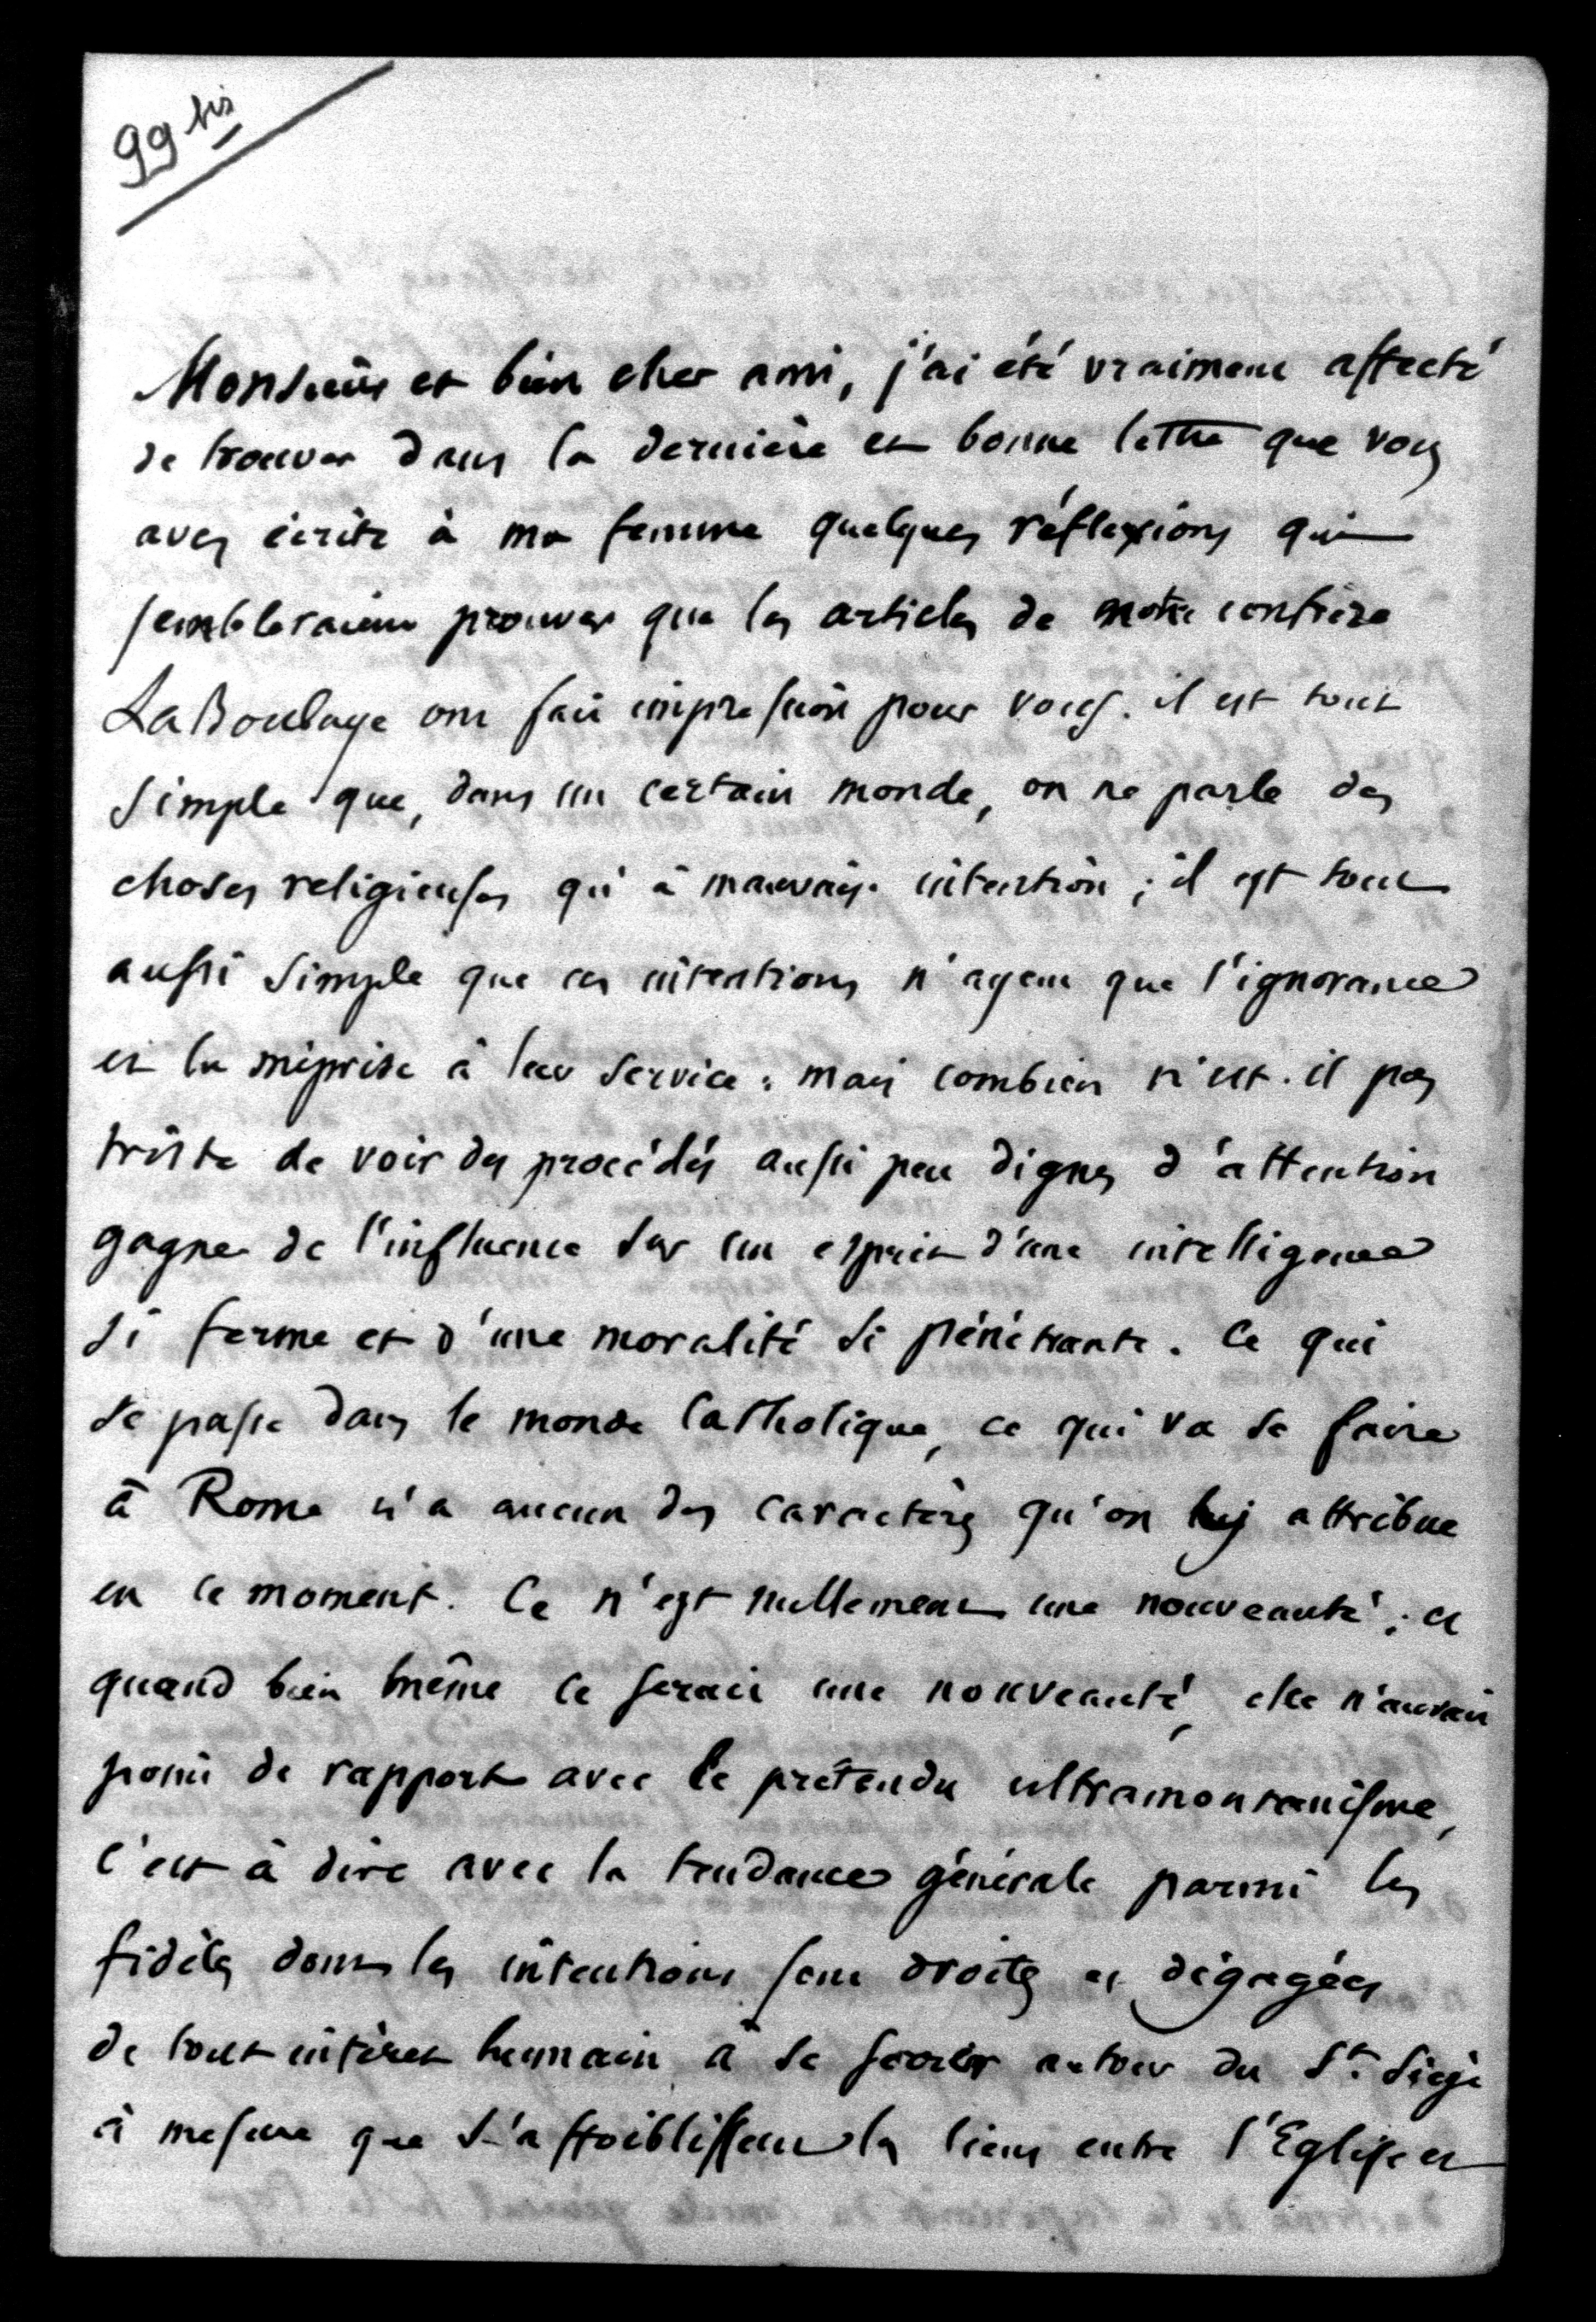 99 bis
Monsieur et bien cher ami, j'ai été vraiment affecté
de trouver dans la dernière et bonne lettre que vous
avez écrite à ma femme quelques réflexions qui
sembleraient prouver que les articles de notre confrère
LaBoulaye ont fait impression pour vous. il est tout
simple que, dans un certain monde, on ne parle des
choses religieuses qu'à mauvaise intention ; il est tout
aussi simple que ces intentions n'ayent que l'ignorance
et la méprise à leur service : mais combien n'est-il pas
triste de voir des procédés aussi peu dignes d'attention
gagner de l'influence sur un esprit d'une intelligence
si ferme et d'une moralité si pénétrante. Ce qui
se passe dans le monde Catholique, ce qui va se faire
à Rome n'a aucun des caractères qu'on luy attribue
en ce moment. Ce n'est nullement une nouveauté ; et
quand bien même ce serait une nouveauté, elle n'aurait
point de rapport avec le prétendu ultramontanisme,
c'est à dire avec la tendance générale parmi les
fidèles dont les intentions sont droites et dégagées
de tout intérêt humain à se serrer autour du St. Siège
à mesure que s'affoiblissent les liens entre l'Eglise et